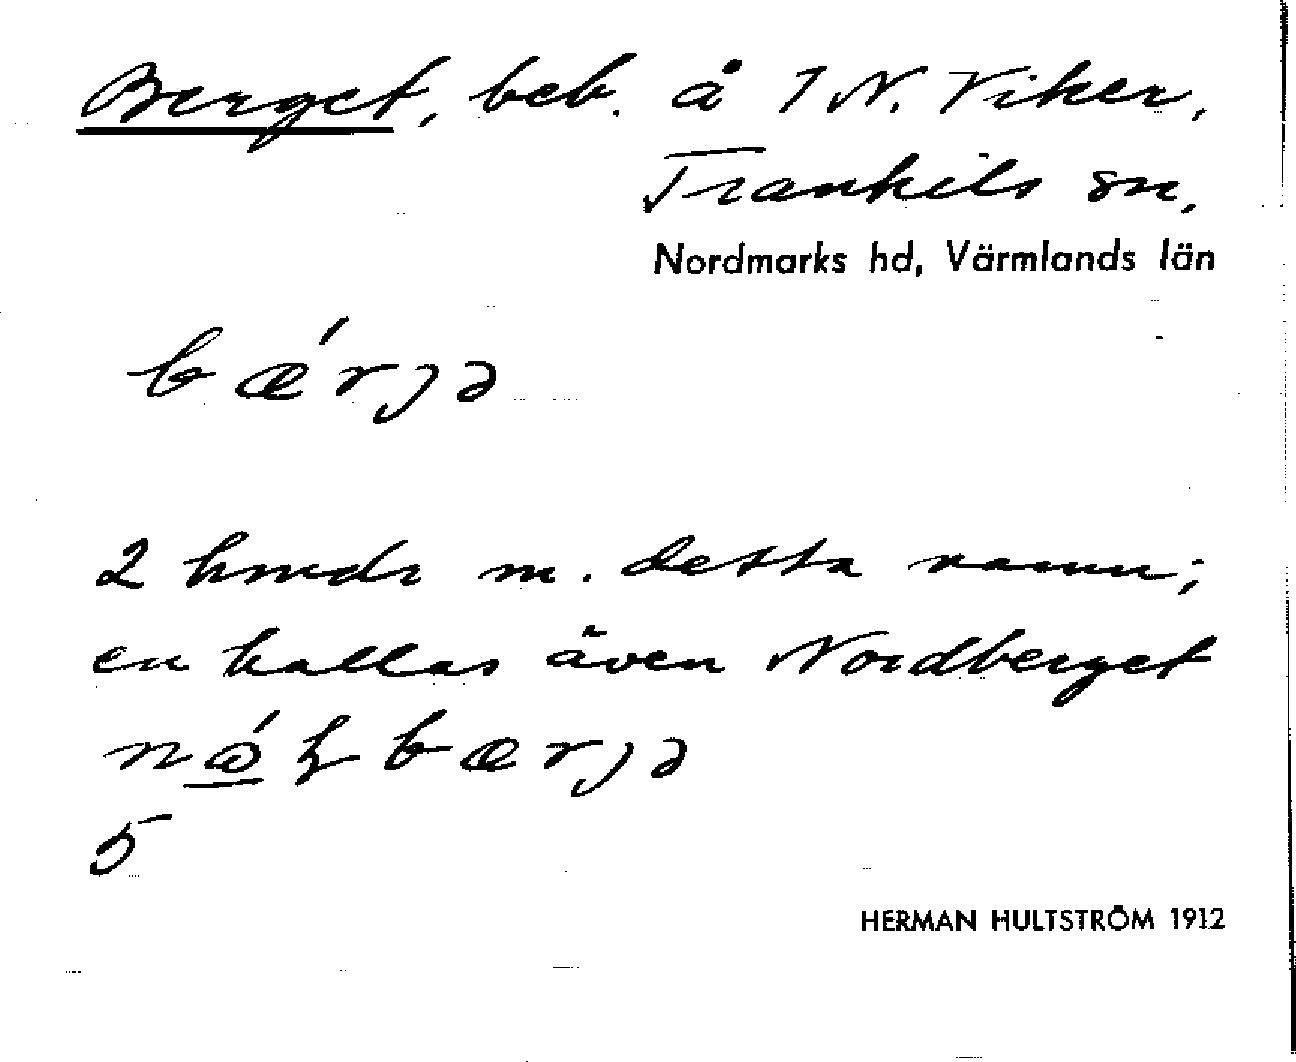 Berget, beb. å 1 N. Viker,
Trankils sn,
Nordmarks hd, Värmlands län
bǽrjə
2 hmdr m. detta namn;
en kallas även Nordberget
bærjə
5
HERMAN HULTSTRÖM 1912